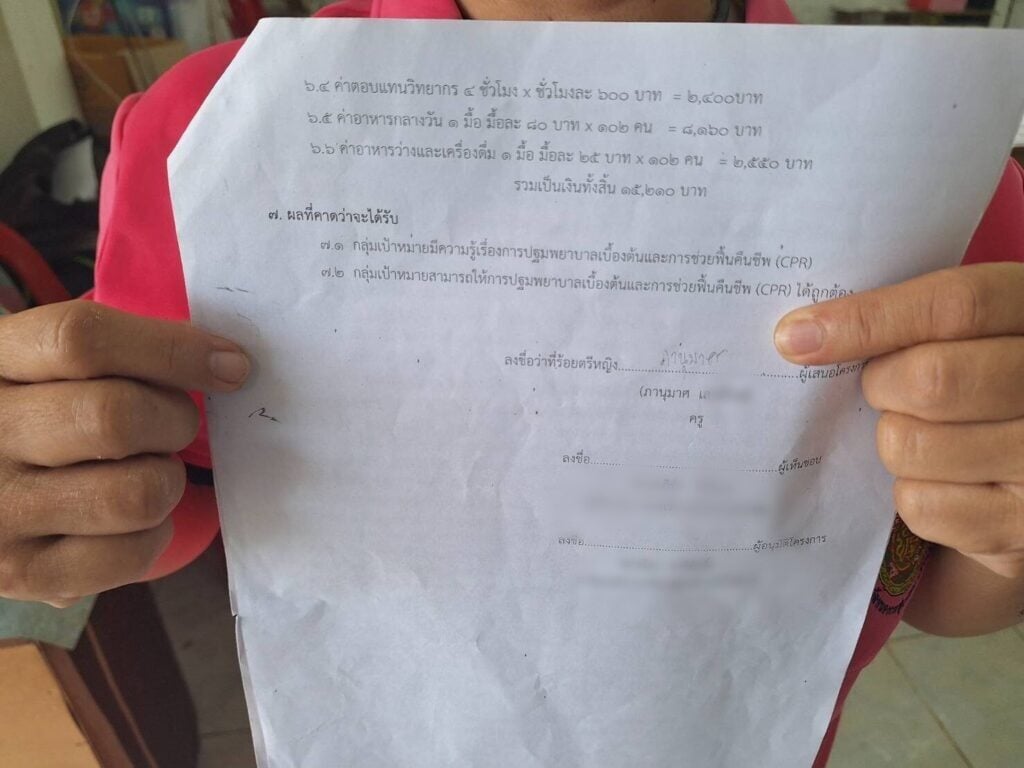 ๖.๔ ค่าตอบแทนวิทยากร ๔ ชั่วโมง x ชั่วโมงละ ๖๐๐ บาท = ๒,๔๐๐บาท
๖.๕ ค่าอาหารกลางวัน ๑ มื้อ มื้อละ ๘๐ บาท x ๑๐๒ คน = ๘,๑๖๐ บาท
๖.๖ ค่าอาหารว่างและเครื่องดื่ม ๑ มื้อ มื้อละ ๒๕ บาท x ๑๐๒ คน = ๒,๕๕๐ บาท
รวมเป็นเงินทั้งสิ้น ๑๕,๒๑๐ บาท
๗. ผลที่คาดว่าจะได้รับ
๗.๑ กลุ่มเป้าหมายมีความรู้เรื่องการปฐมพยาบาลเบื้องต้นและการช่วยฟื้นคืนชีพ (CPR)
๗.๒ กลุ่มเป้าหมายสามารถให้การปฐมพยาบาลเบื้องต้นและการช่วยฟื้นคืนชีพ (CPR) ได้ถูกต้อง
ลงชื่อว่าที่ร้อยตรีหญิง ภานุมาศ ผู้เสนอโครงการ
(ภานุมาศ
ครู
ลงชื่อ ผู้เห็นชอบ
ลงชื่อ ผู้อนุมัติโครงการ